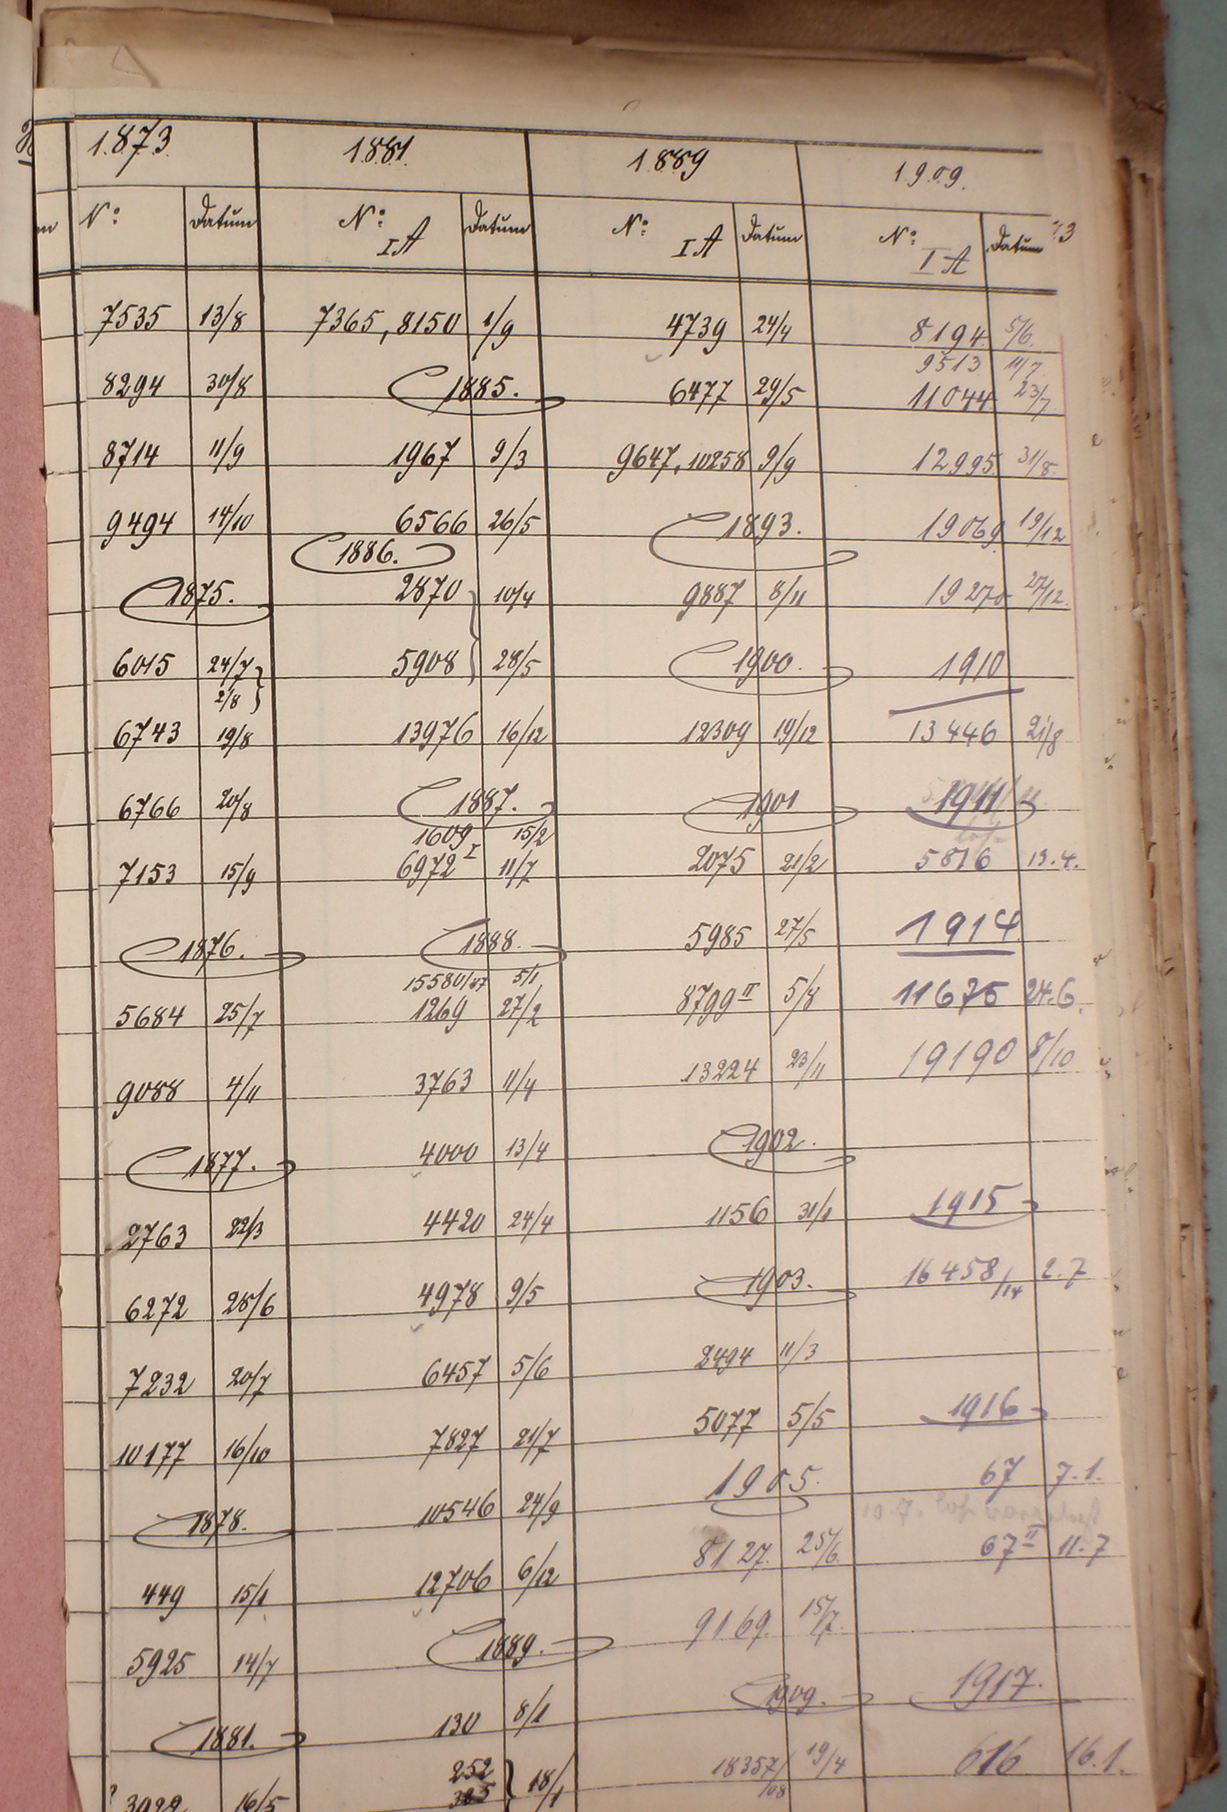 1873.
Nº: Datum
7535 13/8
8294 30/8
8714 11/9
9494 14/10
1875.
6015 24/7
2/8
6743 19/8
6766 20/8
7153 15/9
1876.
5684 25/7
9088 4/11
1877.
2763 22/3
6272 28/6
7232 20/7
10177 16/10
1878.
449 15/1
5925 14/7
1881.
3922 16/5
1881.
Nº: Datum
I A
7365, 8150 1/9
1885.
1967 9/3
6566 26/5
1886.
2870 10/4
5908 28/5
13976 16/12
1887.
1609 15/2
6972 I 11/7
1888.
15580/87 5/1
1269 27/2
3763 11/4
4000 13/4
4420 24/4
4978 9/5
6457 5/6
7827 21/7
10546 24/9
12706 6/12
1889.
130 8/1
252
18/1
1889
Nº: Datum
I A
4739 24/4
6477 29/5
9647, 10258 9/9
1893.
9887 8/11
1900.
12309 19/12
1901
2075 21/2
5985 27/5
8799 II 5/8
13224 23/11
1902.
1156 31/1
1903.
2494 11/3
5077 5/5
1905.
8127. 25/6.
9169. 15/7.
1909.
18357/08 19/4
1909.
Nº: Datum
I A
8194. 5/6.
9513 11/7
11044 23/7.
12995. 31/8.
19069. 19/12
19270 27/12.
1910
13446 21/8
1911
5816 13.4.
1914
11675 24.6.
19190 8/10
1915
16458/14 2.7
1916
67 7.1.
67 II 11.7
1917.
616 16.1.